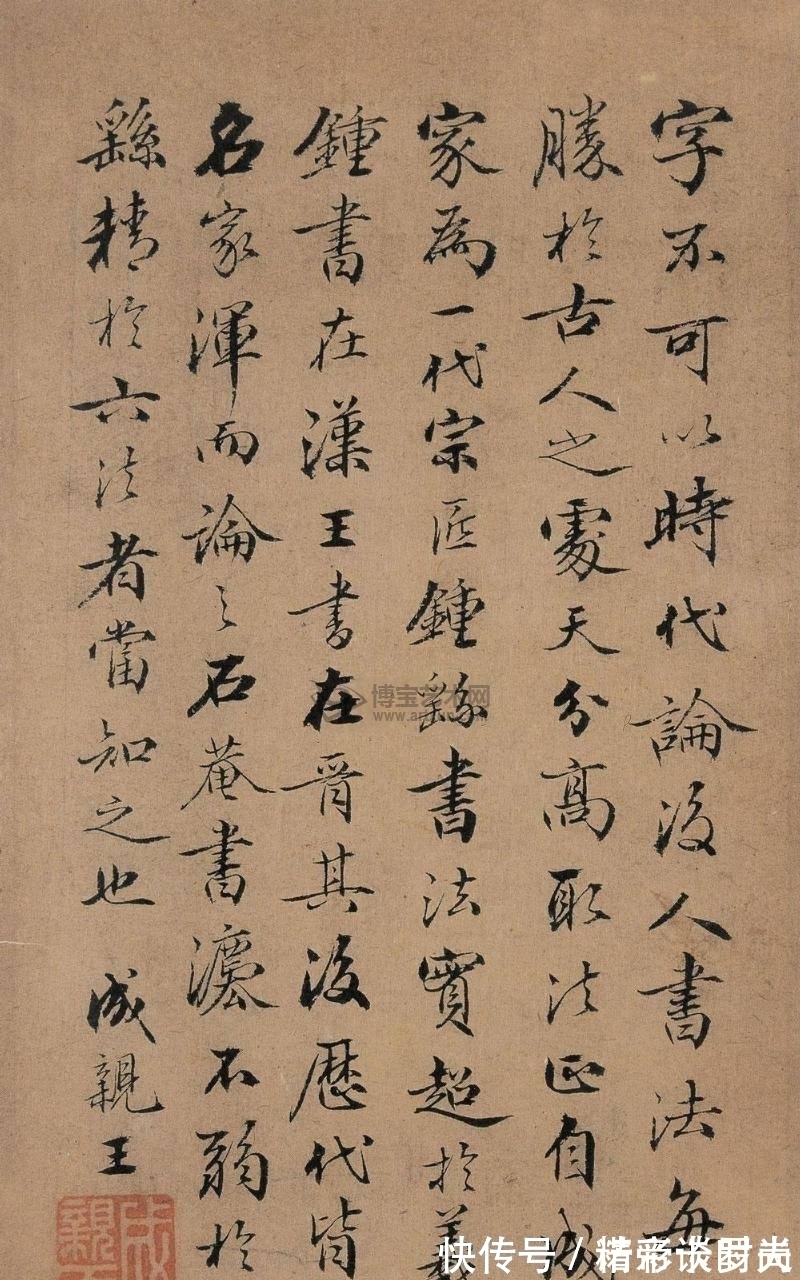 字不可以時代論後人書法每
勝於古人之處天分高取法正自成
家為一代宗匠鍾繇書法實超於羲
鍾書在漢王書在晉其後歷代皆
名家渾而論之石菴書灋不弱於
繇精於六法者當知之也 成親王
成親
博宝艺术网
快传号 /